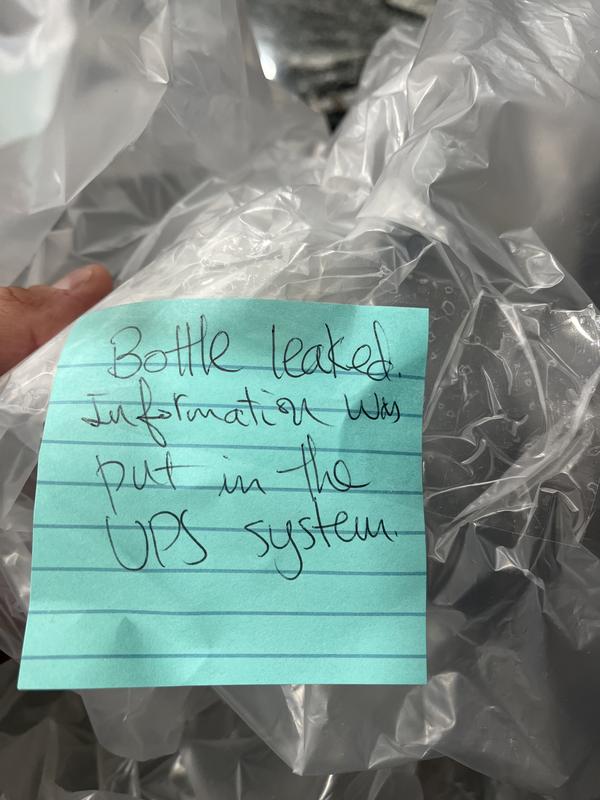 Bottle leaked.
Information was
put in the
UPS system.